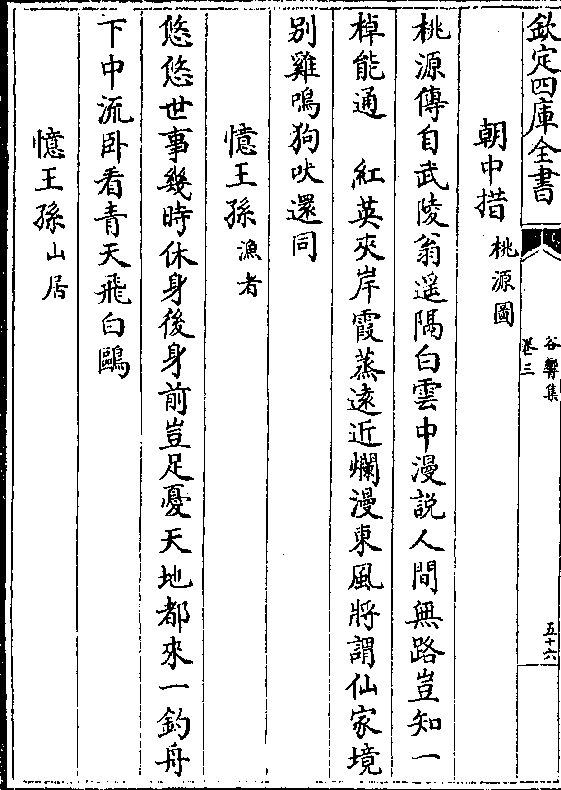 欽定四庫全書
谷響集
卷三
五十六
朝中措桃源圖
桃源傳自武陵翁遥隅白雲中漫説人間無路豈知一
棹能通　紅英夾岸霞蒸遠近爛漫東風將謂仙家境
别雞鳴狗吠還同
憶王孫漁者
悠悠世事幾時休身後身前豈足憂天地都來一釣舟
下中流卧看青天飛白鷗
憶王孫山居